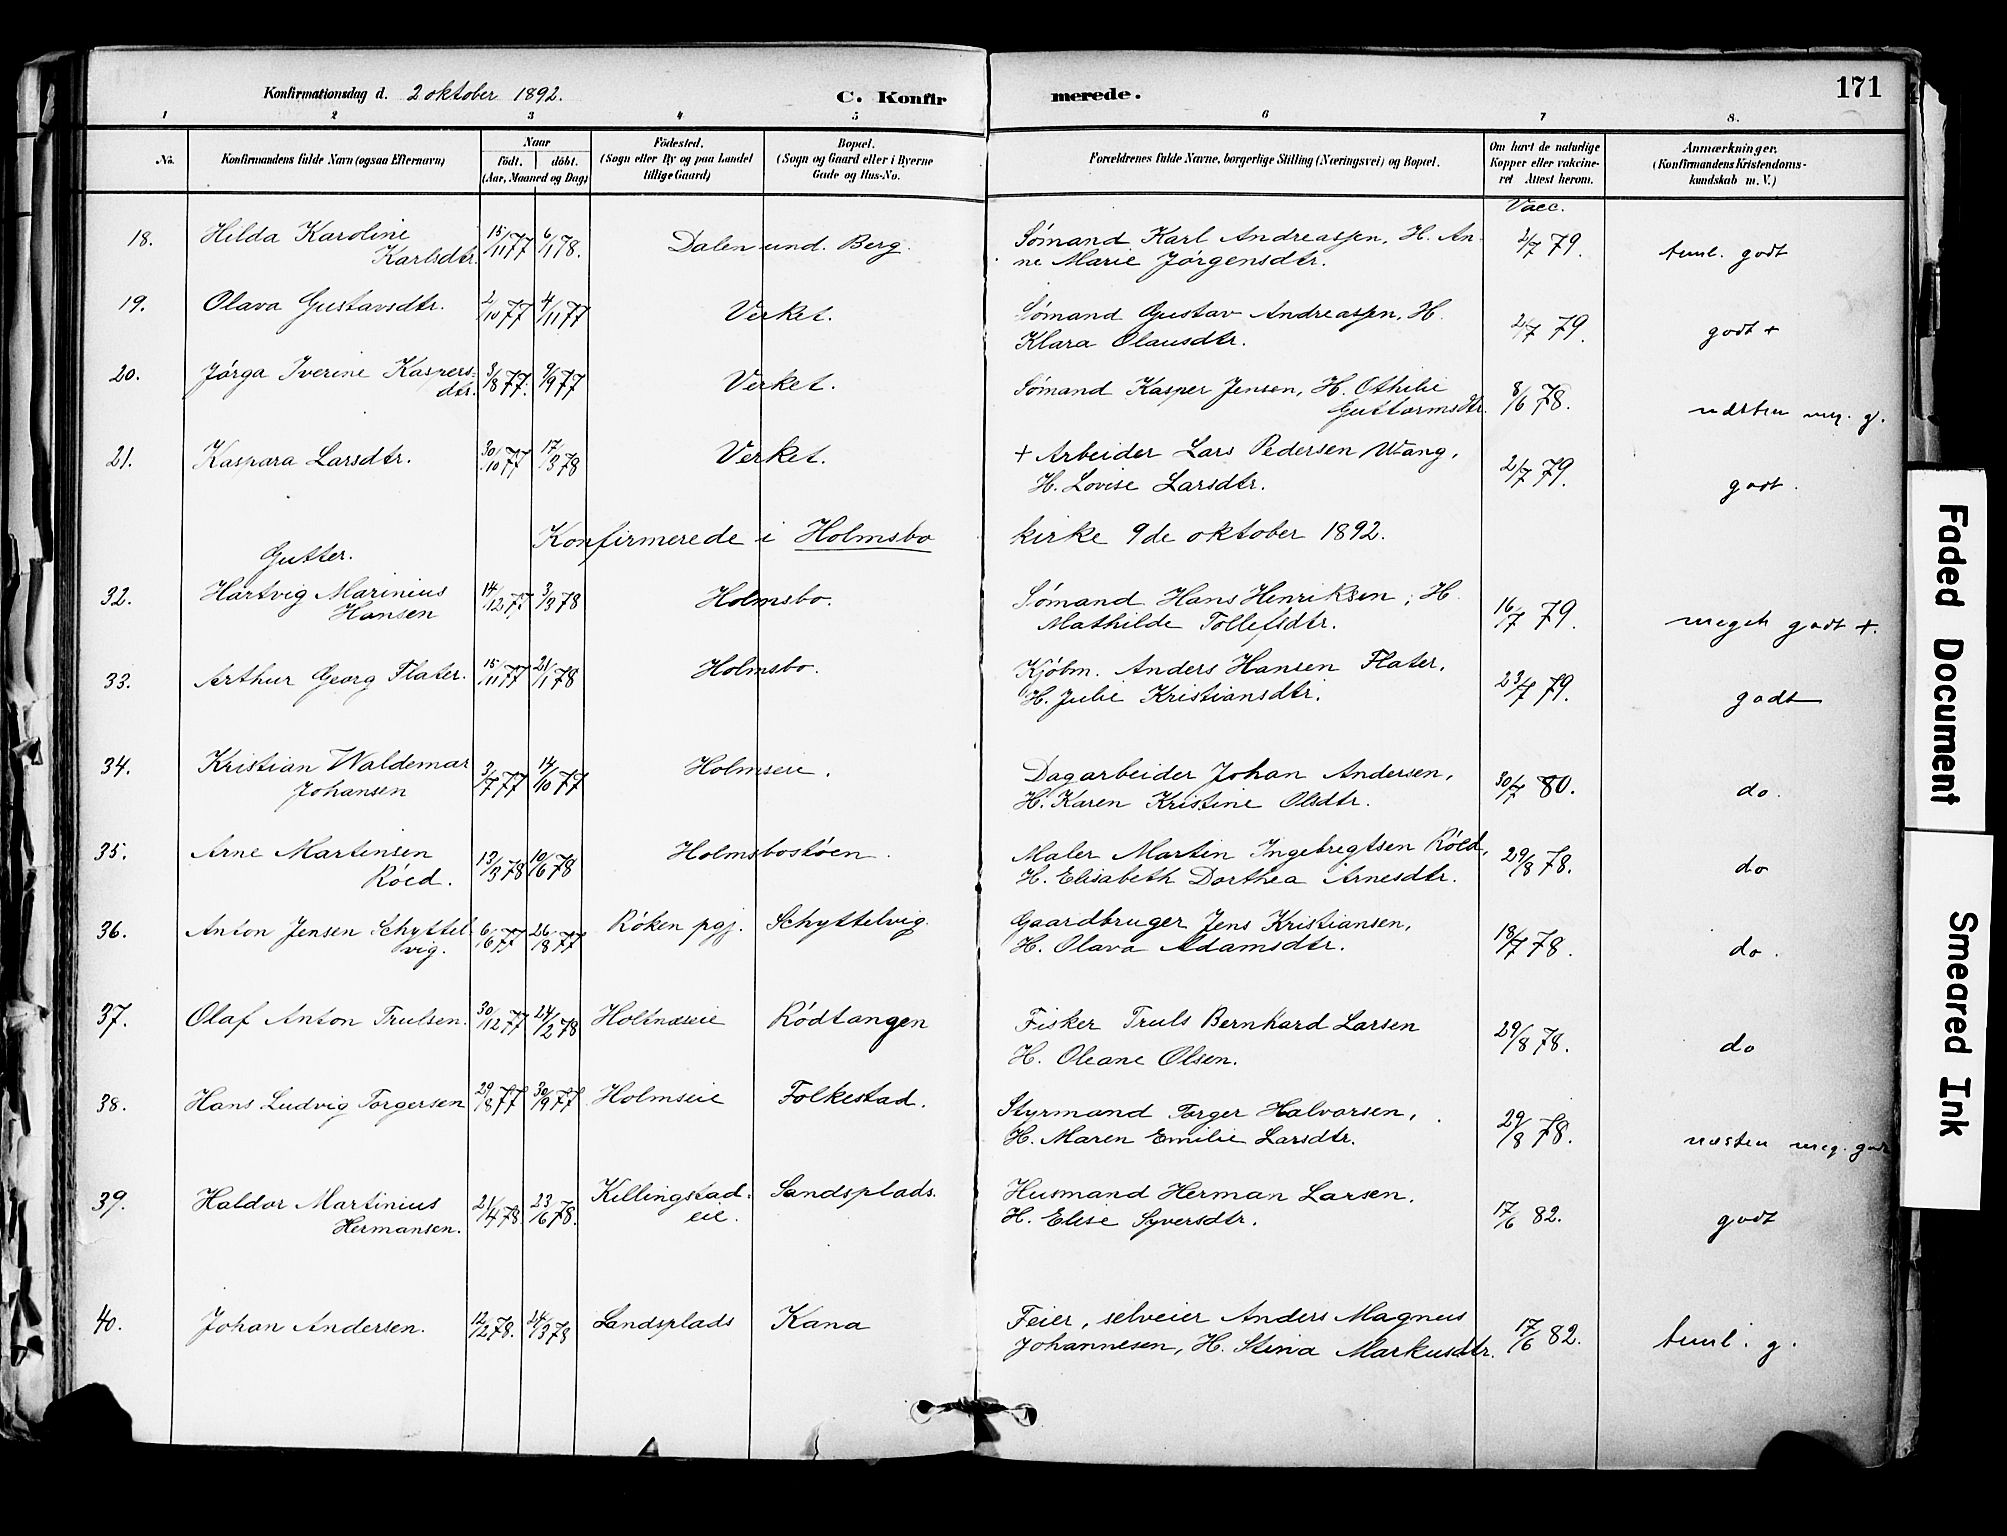 171
Konfirmationsdag d. 2 oktober 1892. C. Konfirmerede.
1 2 3 4 5 6 7 8.
No. Konfirmandens fulde Navn (ogsaa Efternavn) Naar født. døbt. (Aar, Maaned og Dag) Fødested. (Sogn eller By og paa Landet tillige Gaard) Bopæl. (Sogn og Gaard eller i Byerne Gade og Hus-No. Forældrenes fulde Navne, borgerlige Stilling (Næringsvei) og Bopæl. Om havt de naturlige Kopper eller vakcineret Attest herom. Anmærkninger, (Konfirmandens Kristendomskundskab m. V.)
Vacc.
18. Hilda Karoline 15/11 77 6/1 78. Dalen und. Berg. Sømand Karl Andreassen, H. An-
Karlsdtr. ne Marie Jørgensdtr. 2/7 79. teml. godt
19. Olava Gustavsdtr. 2/10 77 4/11 77 Verket. Sømand Gustav Andreassen, H.
Klara Olausdtr. 2/7 79. godt +
20. Jørga Iverine Kaspers- 3/8 77. 9/9 77 Verket. Sømand Kasper Jensen, H. Othilie
dtr. Guttormsdtr. 8/6 78. næsten meg. g.
21. Kaspara Larsdtr. 30/10 77 17/3 78 Verket. + Arbeider Lars Pedersen Wang,
H. Lovise Larsdtr. 2/7 79. godt.
Konfirmerede i Holmsbo kirke 9de oktober 1892.
Gutter.
32. Hartvig Marinius 14/12 77 3/3 78 Holmsbo. Sømand Hans Henriksen, H.
Hansen Mathilde Tollefsdtr. 16/7 79. meget godt +.
33. Arthur Georg Flater. 15/11 77 21/1 78 Holmsbo. Kjøbm. Anders Hansen Flater,
H. Julie Kristiansdtr. 23/7 79. godt
34. Kristian Waldemar 3/7 77 14/10 77 Holmseie. Dagarbeider Johan Andersen,
Johansen H. Karen Kristine Olsdtr. 30/7 80. do.
35. Arne Martinsen 13/3 78 10/6 78 Holmsbostøen. Maler Martin Ingebregtsen Røed,
Røed. H. Elisabeth Dorthea Arnesdtr. 29/8 78. do
36. Anton Jensen Schyttel- 6/6 77 26/8 77 Røken pgj. Schyttelvig. Gaardbruger Jens Kristiansen,
vig. H. Olava Adamsdtr. 18/7 78. do.
37. Olaf Anton Trulsen. 30/12 77 24/2 78 Holtnæseie Rødtangen Fisker Truls Bernhard Larsen
H. Oleane Olsen. 29/8 78. do
38. Hans Ludvig Torgersen 29/8 77 30/9 77 Holmseie Folkestad. Styrmand Torger Halvorsen,
H. Maren Emilie Larsdtr. 29/8 78. næsten meg. godt
39. Haldor Martinius 21/4 78. 23/6 78. Killingstad- Sandsplads. Husmand Herman Larsen,
Hermansen. eie. H. Elise Syversdtr. 17/6 82. godt
40. Johan Andersen. 12/2 78. 24/3 78 Sandsplads Kana Feier, selveier Anders Magnus
Johannesen, H. Stina Markusdtr. 17/6 82. teml. g.
Faded Document
Smeared Ink